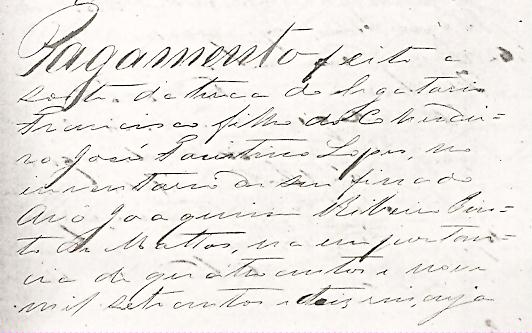 Pagamento feito a
sorte da terça do legatario
Francisco filho do Cherdei-
ro José Faustino Lopes, no
inventario de seu finado
Avô Joaquim Ribeiro Pin-
to de Mattos, na importan-
cia de quatrocentos e nove
mil setecentos e dois reis, cuja